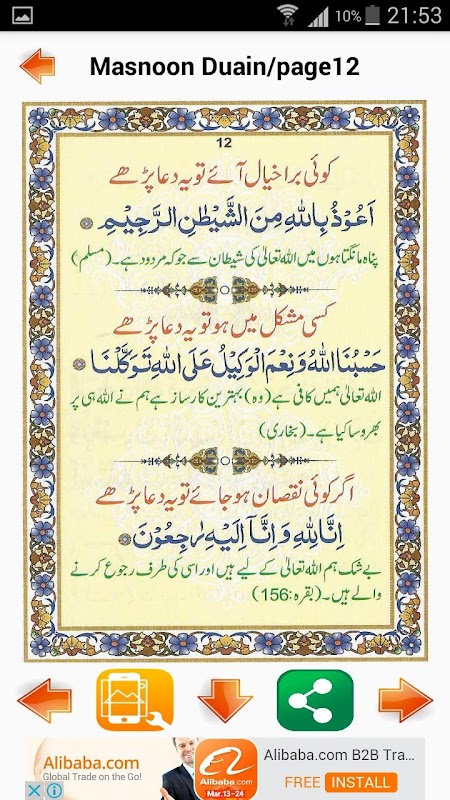 10% 21:53
Masnoon Duain/page12
12
کوئی برا خیال آئے تو یہ دعا پڑھے
اَعُوْذُ بِاللهِ مِنَ الشَّيْطٰنِ الرَّجِيْمِ
پناہ مانگتا ہوں میں اللہ تعالیٰ کی شیطان سے جو کہ مردود ہے۔ (مسلم)
کسی مشکل میں ہو تو یہ دعا پڑھے
حَسْبُنَا اللهُ وَ نِعْمَ الْوَكِيْلُ عَلَى اللهِ تَوَكَّلْنَا
اللہ تعالیٰ ہمیں کافی ہے (وہ) بہترین کارساز ہے ہم نے اللہ ہی پر
بھروسا کیا ہے۔ (بخاری)
اگر کوئی نقصان ہو جائے تو یہ دعا پڑھے
اِنَّا لِلّٰهِ وَ اِنَّآ اِلَيْهِ رٰجِعُوْنَ
بے شک ہم اللہ تعالیٰ کے لیے ہیں اور اسی کی طرف رجوع کرنے
والے ہیں۔ (بقرہ:156)
Alibaba.com
Global Trade on the Go!
Alibaba.com
Mar.13-24
Alibaba.com B2B Tra...
FREE INSTALL